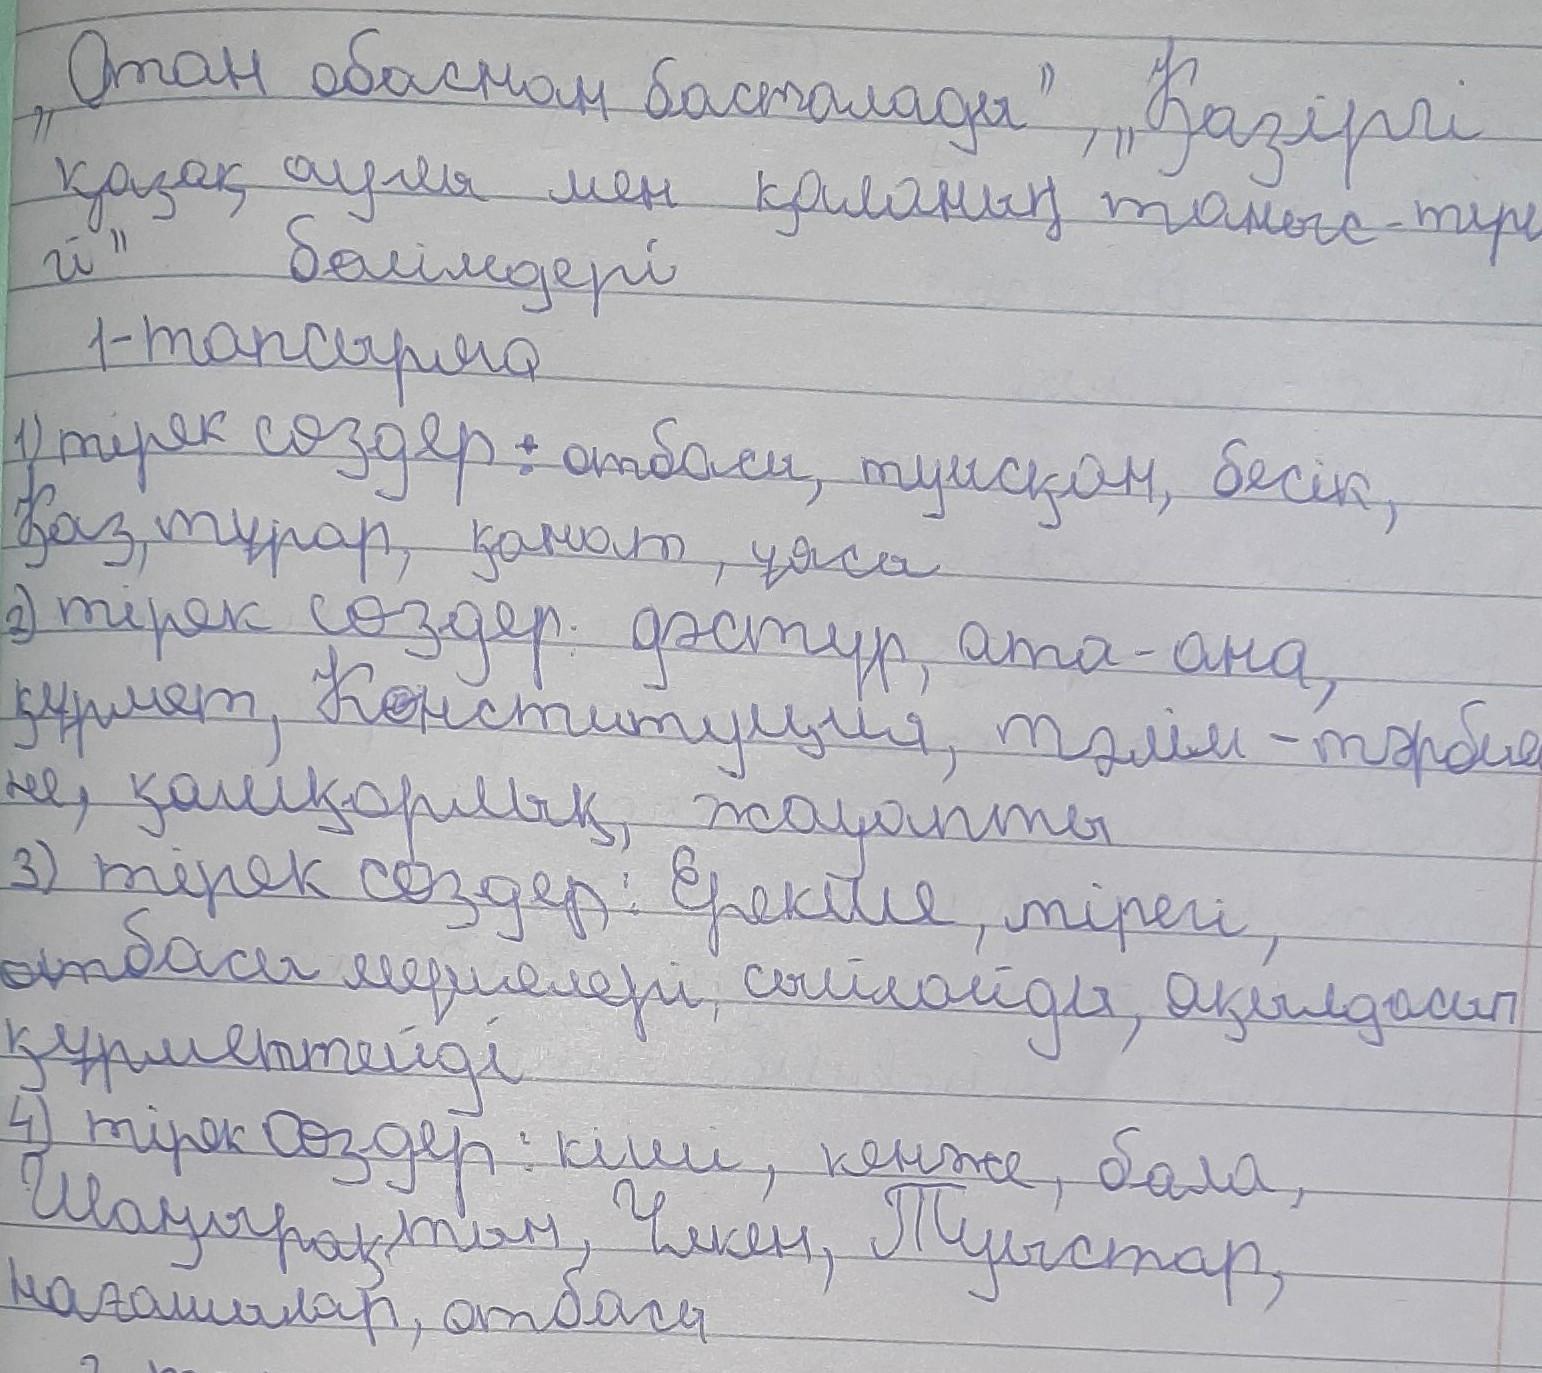 „Отан обаснан басталады", „Қазіргі
қазақ ауылы мен қаланың тыныс-тірі
й" бөлімдері
1-тапсырма
1) тірек сөздер: отбасы, туысқан, бесік,
Қаз, тұрар, қанат, ұясы
2) тірек сөздер: дәстүр, ата-ана,
құрмет, Конституция, тәлім-тәрбие
не, қамқорлық, жауапты
3) тірек сөздер: Ерекше, тірегі,
отбасы мүшелері, сыйлайды, ақылдасып
құрметтейді
4) тірек сөздер: кіші, кенже, бала,
Шаңырақтың, Үлкен, Туыстар,
нағашылар, отбасы